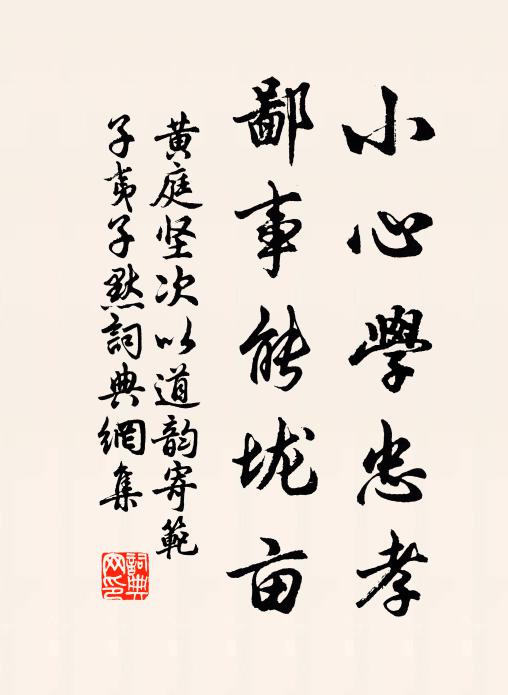 小心學忠孝
鄙事能垅亩
黄庭坚次以道韵寄範
子夷子默詞典網集
詞典网印